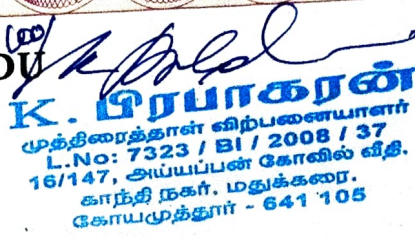 100/
DU
K. பிரபாகரன்
முத்திரைத்தாள் விற்பனையாளர்
L.No: 7323 / BI / 2008 / 37
16/147, அய்யப்பன் கோவில் வீதி.
காந்தி நகர். மதுக்கரை.
கோயமுத்தூர் - 641 105